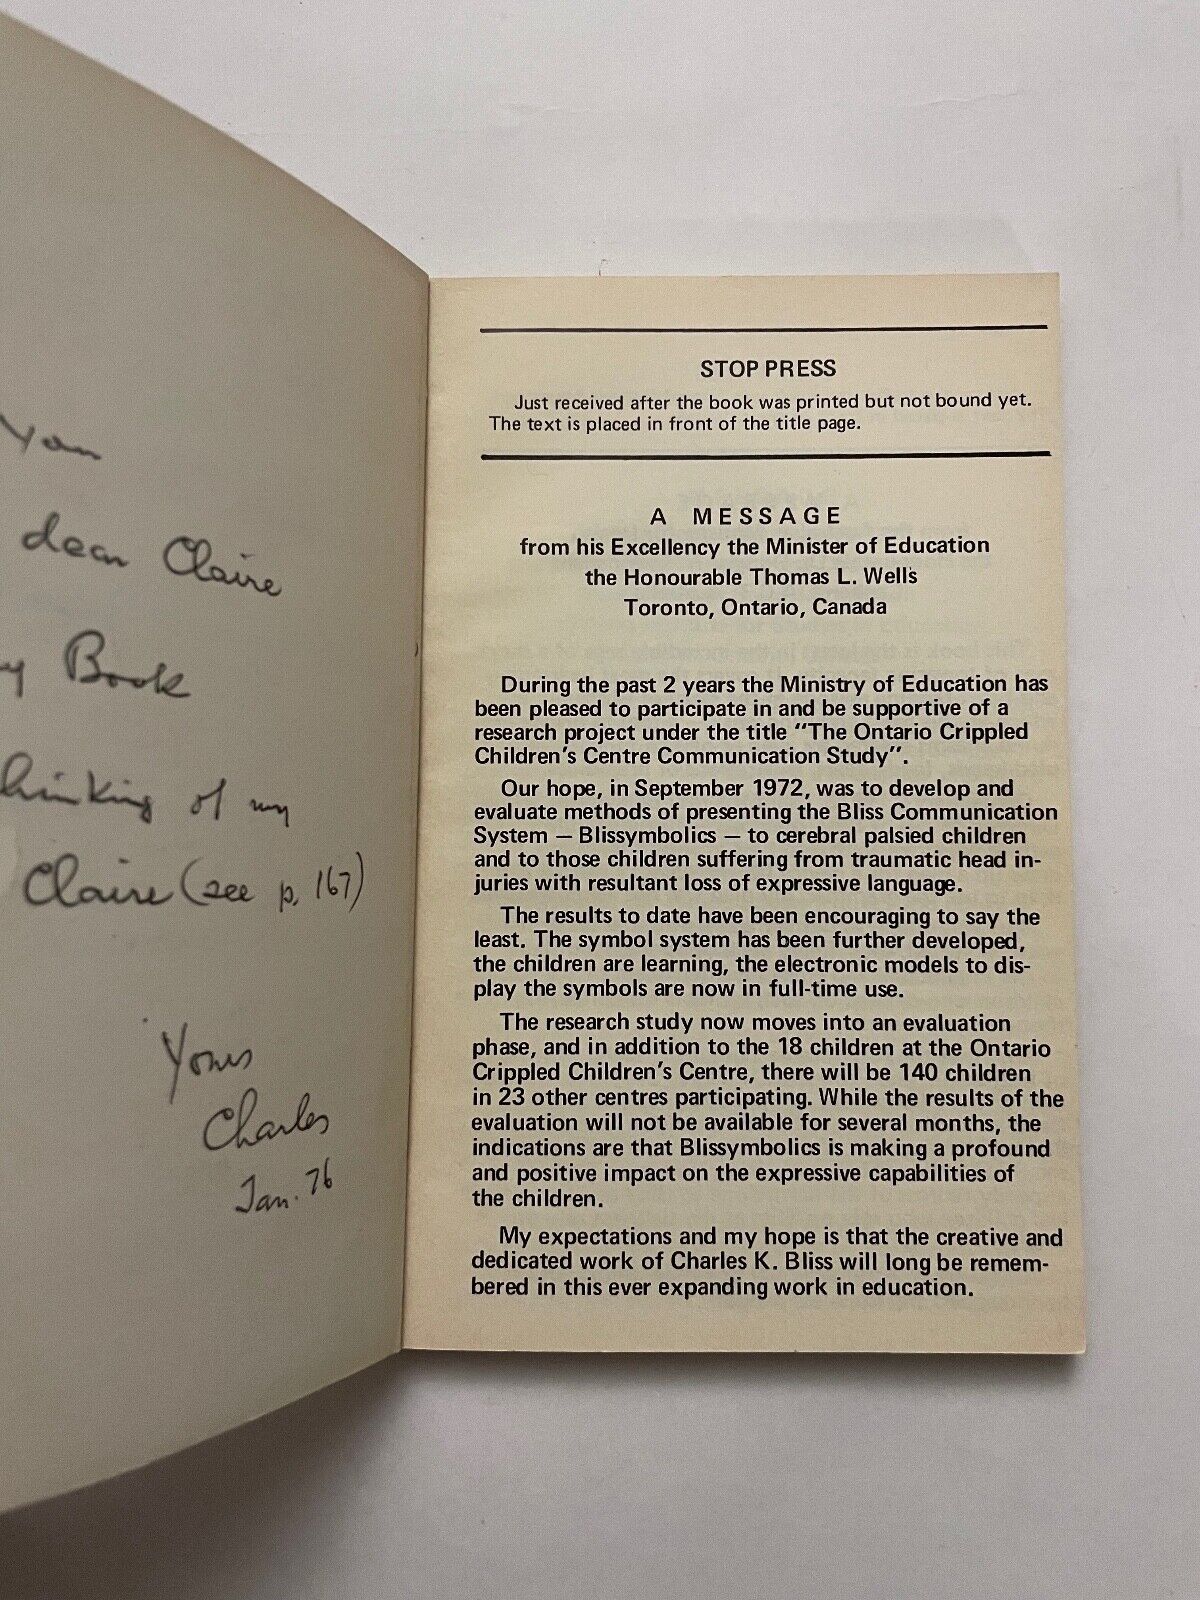 You
dear Claire
Book
thinking of my
Claire (see p. 167)
Yours
Charles
Jan. 76
STOP PRESS
Just received after the book was printed but not bound yet.
The text is placed in front of the title page.
A MESSAGE
from his Excellency the Minister of Education
the Honourable Thomas L. Wells
Toronto, Ontario, Canada
During the past 2 years the Ministry of Education has
been pleased to participate in and be supportive of a
research project under the title "The Ontario Crippled
Children's Centre Communication Study".
Our hope, in September 1972, was to develop and
evaluate methods of presenting the Bliss Communication
System — Blissymbolics — to cerebral palsied children
and to those children suffering from traumatic head in-
juries with resultant loss of expressive language.
The results to date have been encouraging to say the
least. The symbol system has been further developed,
the children are learning, the electronic models to dis-
play the symbols are now in full-time use.
The research study now moves into an evaluation
phase, and in addition to the 18 children at the Ontario
Crippled Children's Centre, there will be 140 children
in 23 other centres participating. While the results of the
evaluation will not be available for several months, the
indications are that Blissymbolics is making a profound
and positive impact on the expressive capabilities of
the children.
My expectations and my hope is that the creative and
dedicated work of Charles K. Bliss will long be remem-
bered in this ever expanding work in education.